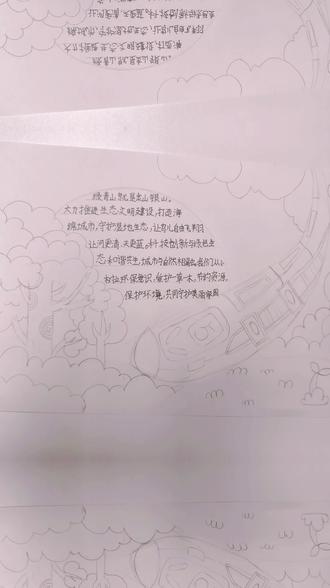 绿青山就是金山银山。
大力推进生态文明建设,打造海
绵城市,守护湿地生态,让鸟儿自由飞翔
让河更清、天更蓝。科技创新与绿色生
态和谐共生,城市与自然相融。我们从小
树立环保意识,爱护一草一木,节约资源,
保护环境,共同守护美丽家园